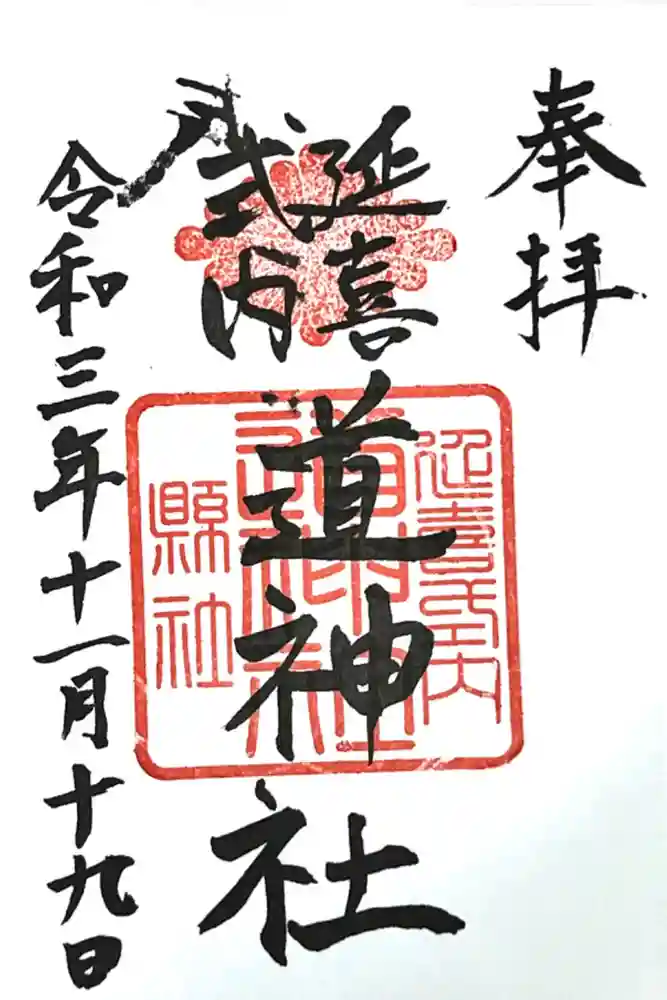 奉拝
延喜
式内
道神社
令和三年十一月十九日
延喜式内
道神社
縣社